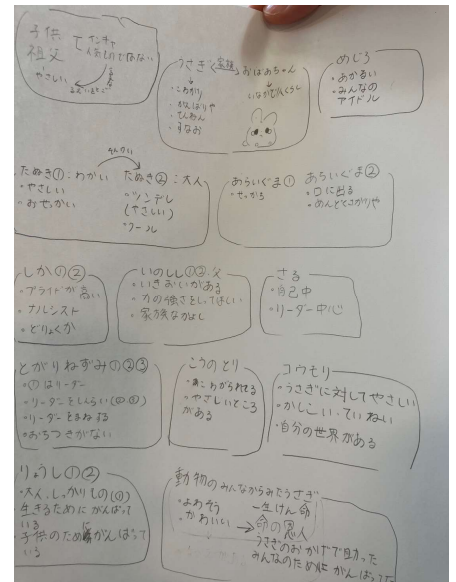 子供
祖父
で
人気者ではない
やさしい
うさぎ
家族
おばあちゃん
・こわがり
・がんばりや
・すなお
めじろ
・あかるい
・みんなの
アイドル
たぬき①:わかい
・やさしい
・おせっかい
たぬき②:大人
・ツンデレ
(やさしい)
・クール
あらいぐま①
・せっかち
あらいぐま②
・口に出る
・めんどくさがりや
しか①②
・プライドが高い
・ナルシスト
・どりょくか
いのしし①② 父
・いきおいがある
・力の強さをしてほしい
・家族なかよし
さる
・自己中
・リーダー中心
とがりねずみ①②③
・①はリーダー
・リーダーをしんらい
・リーダーをまねする
・おちつきがない
こうのとり
・やさしいところ
がある
コウモリ
・うさぎに対してやさしい
・かしこい・ていねい
・自分の世界がある
りょうし①②
・大人、しっかりもの(①)
生きるためにがんばって
いる
子供のためにがんばって
いる
動物のみんなからみたうさぎ
・よわそう
・かわいい
一生けん命
命の恩人
うさぎのおかげで助かった
みんなのためにがんばった